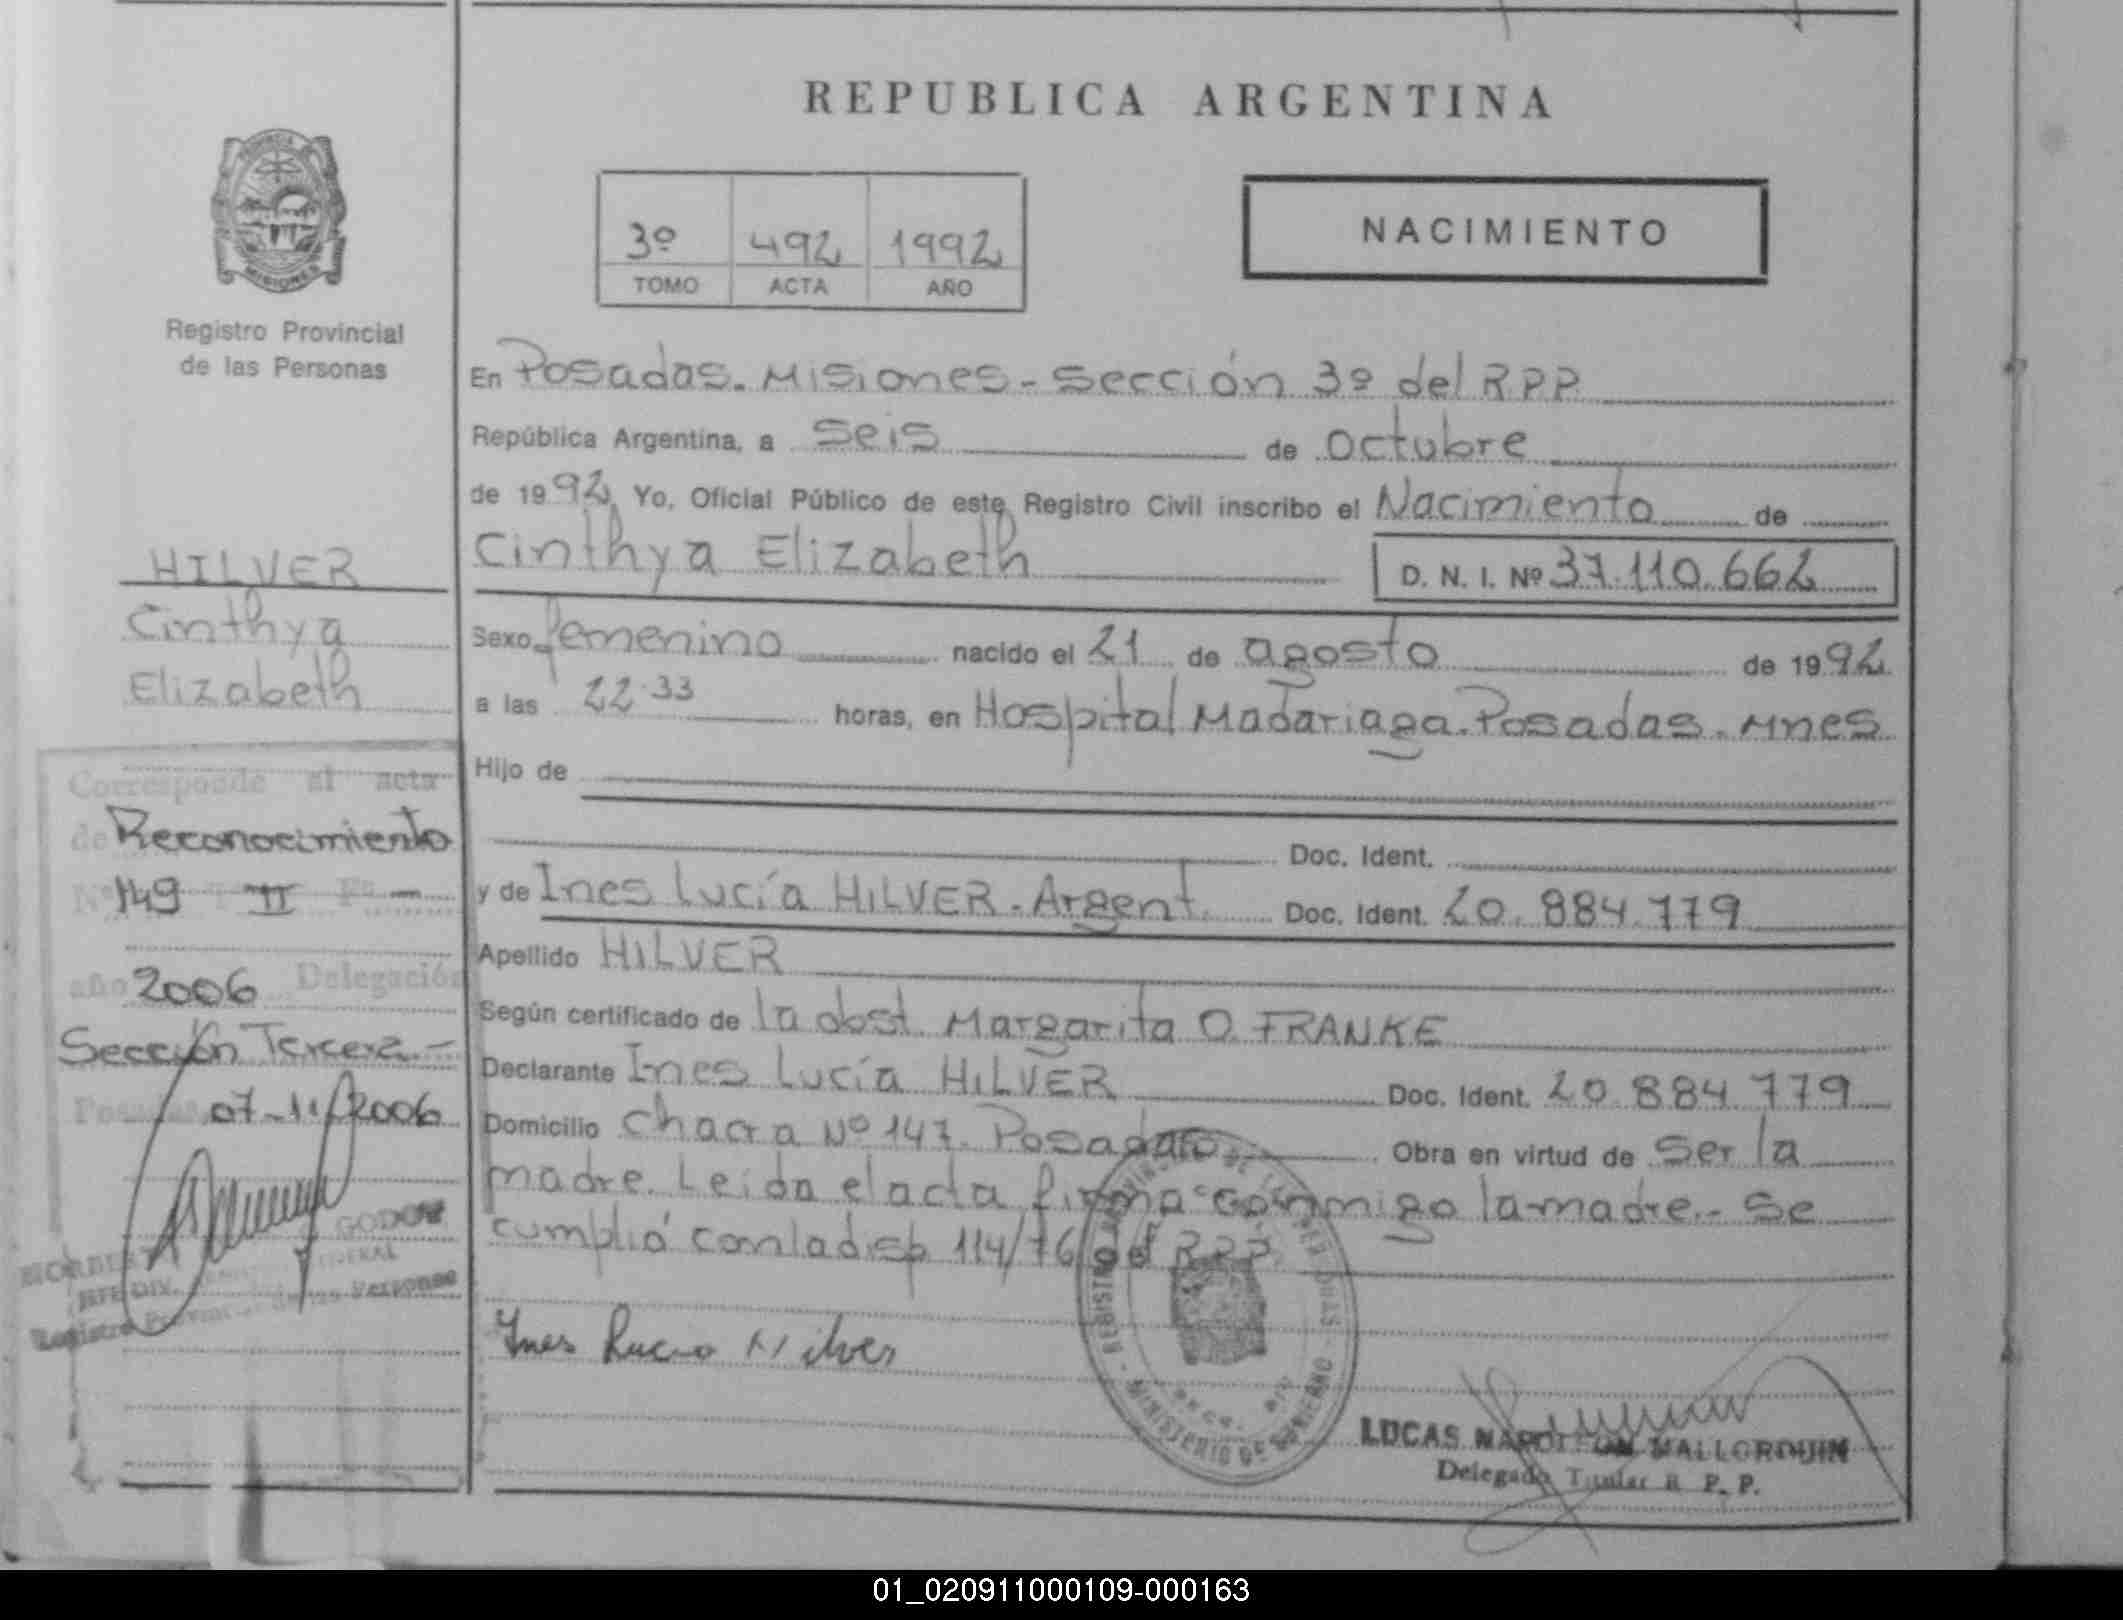 REPUBLICA ARGENTINA
PROVINCIA
MISIONES
Registro Provincial
de las Personas
3º 492 1992
TOMO ACTA AÑO
NACIMIENTO
En Posadas. Misiones - Sección 3º del R.P.P.
República Argentina, a seis de octubre
de 1992. Yo, Oficial Público de este Registro Civil inscribo el Nacimiento de
Cinthya Elizabeth D. N. I. Nº 37.110.662
Sexo femenino nacido el 21 de agosto de 1992
a las 22.33 horas, en Hospital Madariaga. Posadas. Mnes
Hijo de
Doc. Ident.
y de Ines Lucía HILVER. Argent. Doc. Ident. 20.884.779
Apellido HILVER
Según certificado de la obst. Margarita O. FRANKE
Declarante Ines Lucía HILVER Doc. Ident. 20.884.779
Domicilio chacra Nº 147. Posadas Obra en virtud de ser la
madre. Leida el acta firma conmigo la madre.- Se
cumplió con la disp. 114/76 del R.P.P.
Ines Lucia Hilver
MINISTERIO DE GOBIERNO
LUCAS NAPOLEON MALLORQUIN
Delegado Titular R. P. P.
HILVER
Cinthya
Elizabeth
Corresponde al acta
de Reconocimiento
Nº 149 T II Fº -
año 2006 Delegación
Sección Tercera.-
Posadas, 07-11-2006
GODOY
JEFE DIV.
Registro Provincial de las Personas
01_020911000109-000163